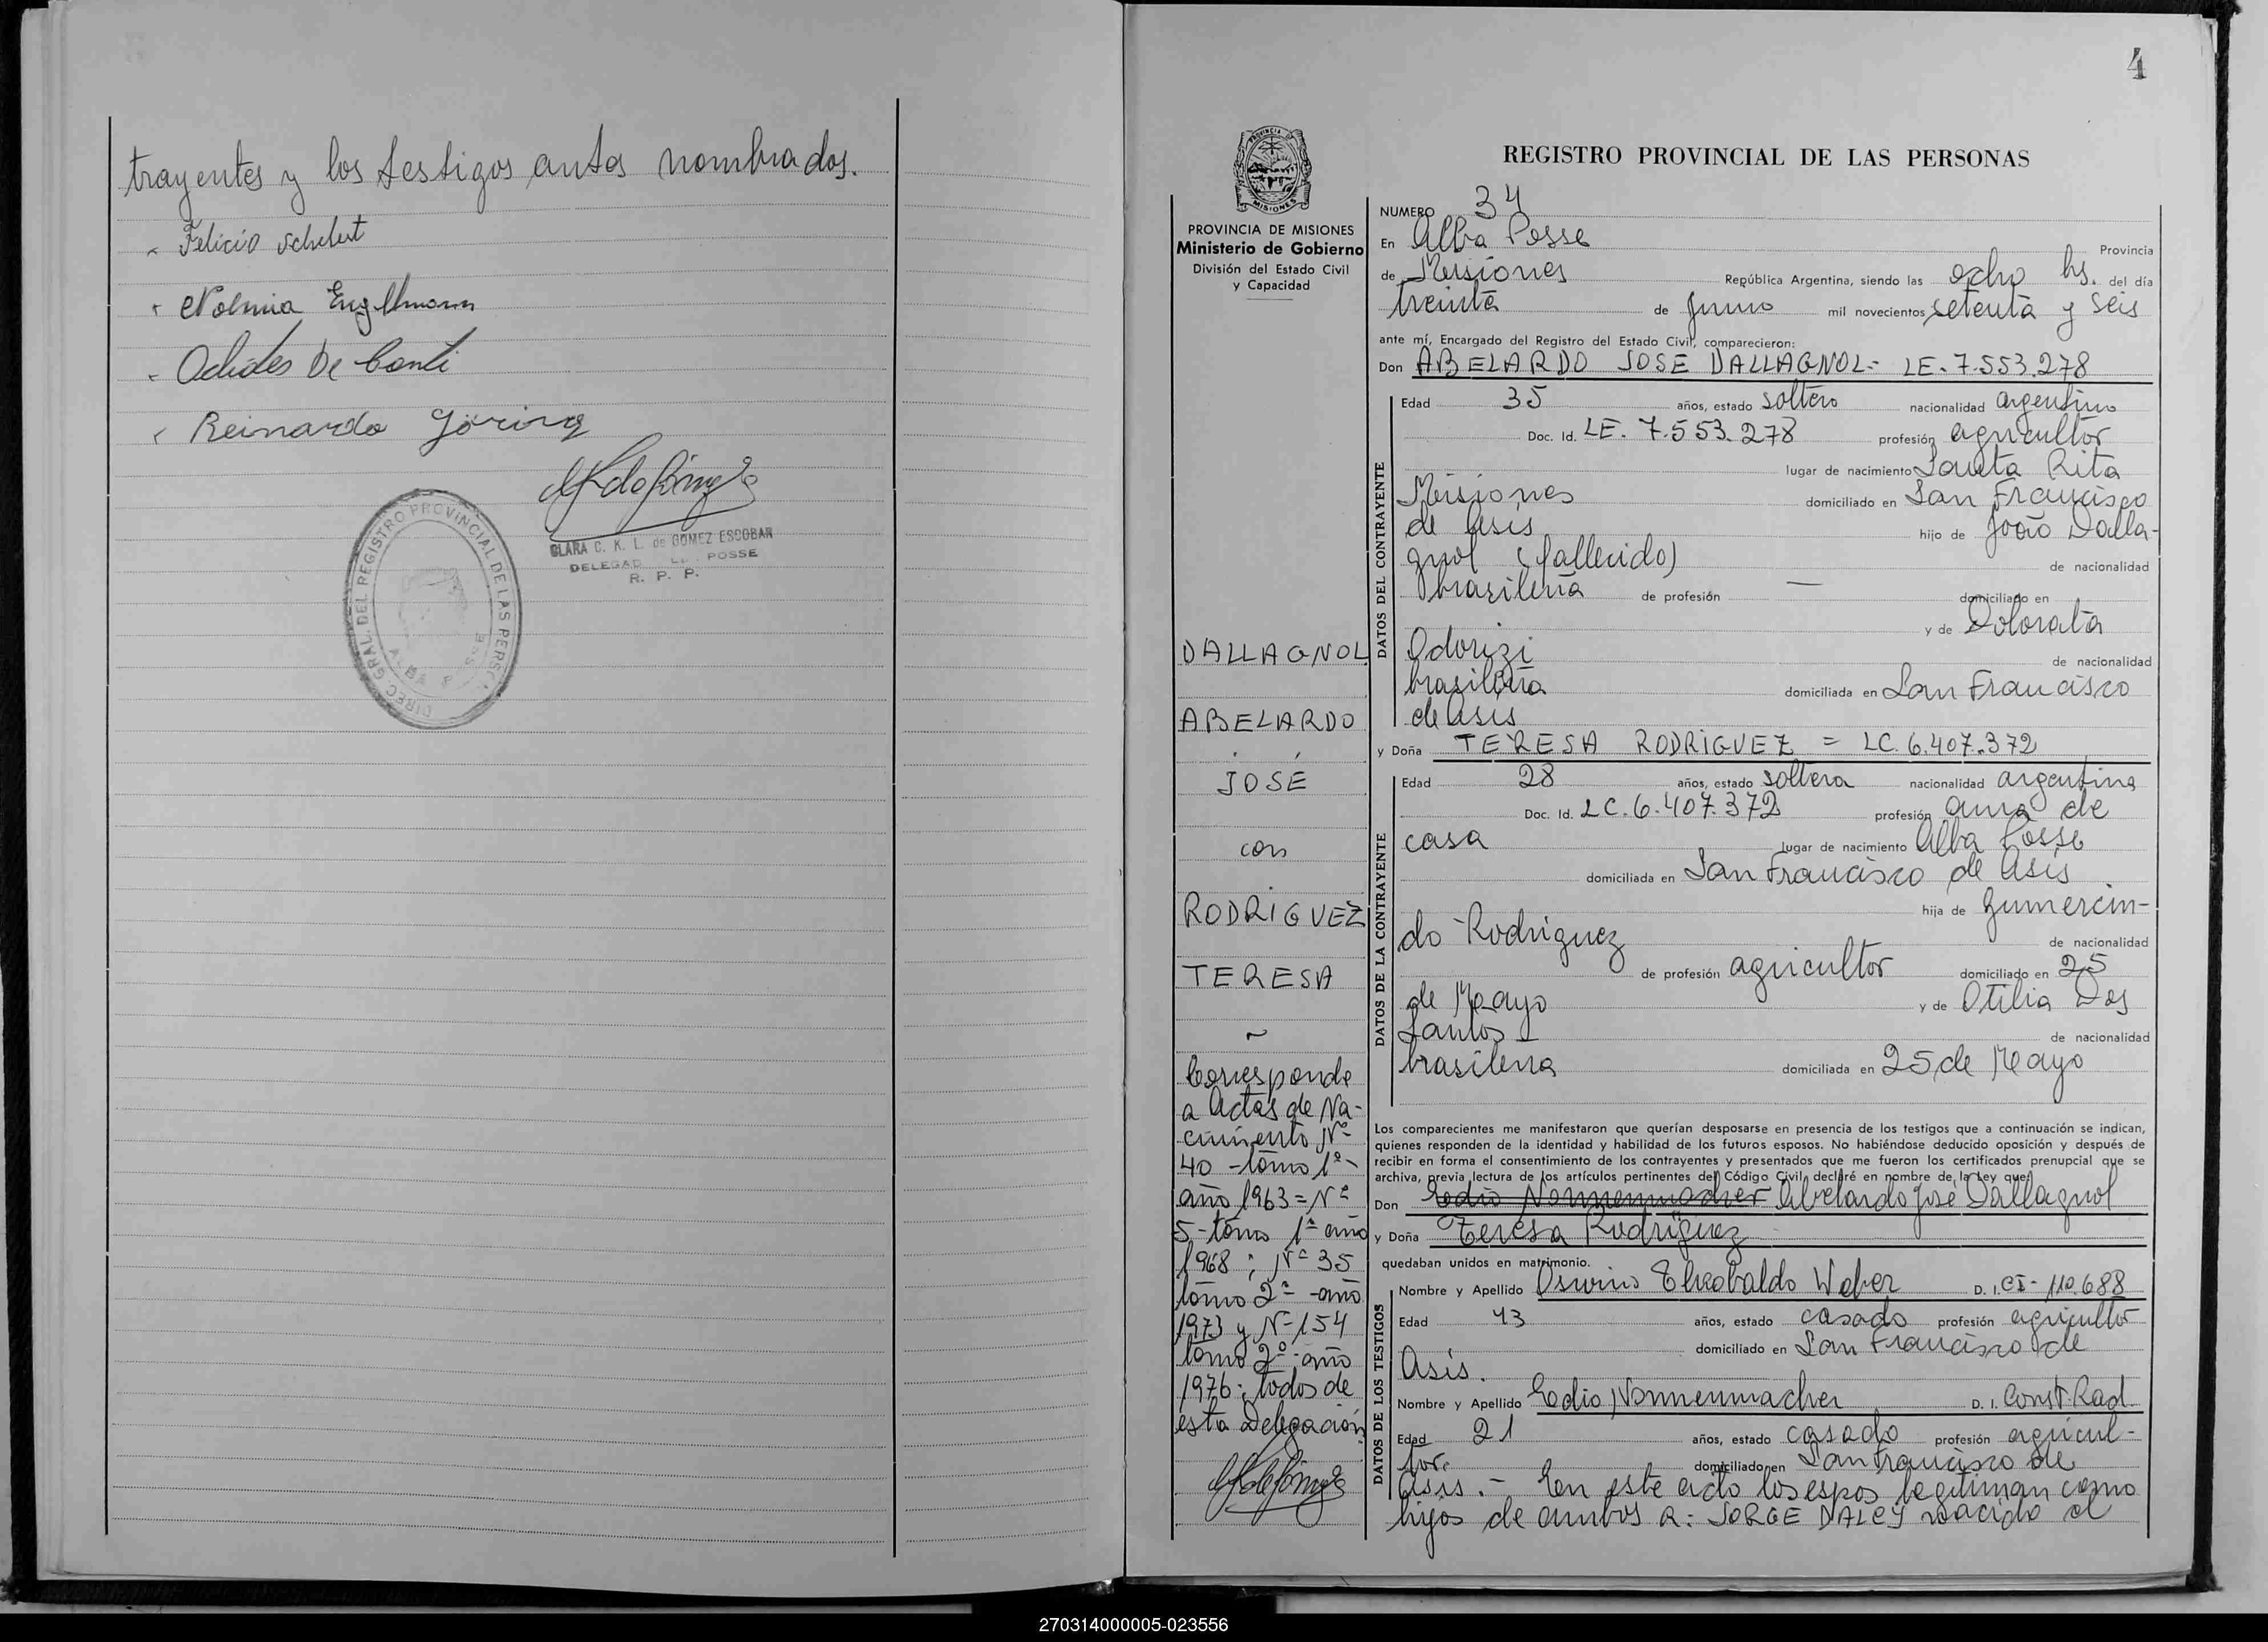 trayentes y los testigos antes nombrados.
- Felicio Schubert
- Nolmia Engelmann
- Oclides De Conti
- Reinardo Göring
CLARA C. K. L. de GOMEZ ESCOBAR
DELEGAD POSSE
R. P. P.
DIREC. GRAL. DEL REGISTRO PROVINCIAL DE LAS PERS.
ALBA POSSE
4
PROVINCIA DE MISIONES
Ministerio de Gobierno
División del Estado Civil
y Capacidad
DALLAGNOL
ABELARDO
JOSÉ
con
RODRIGUEZ
TERESA
~
Corresponde
a Actas de Na-
cimiento Nº
40 - tomo 1º -
año 1963 = Nº
5 - tomo 1º año
1968 ; Nº 35
tomo 2º - año
1973 y Nº 154
tomo 2º - año
1976 ; todos de
esta Delegación
REGISTRO PROVINCIAL DE LAS PERSONAS
NUMERO 34
En Alba Posse Provincia
de Misiones República Argentina, siendo las ocho hs. del día
treinta de Junio mil novecientos setenta y seis
ante mí, Encargado del Registro del Estado Civil, comparecieron:
Don ABELARDO JOSE DALLAGNOL - LE. 7.553.278
DATOS DEL CONTRAYENTE
Edad 35 años, estado soltero nacionalidad argentino
Doc. Id. LE. 7.553.278 profesión agricultor
lugar de nacimiento Santa Rita
Misiones domiciliado en San Francisco
de Asis hijo de João Dalla-
gnol (fallecido) de nacionalidad
brasileña de profesión — domiciliado en
y de Dolorata
Odorizi de nacionalidad
brasileña domiciliada en San Francisco
de Asis
y Doña TERESA RODRIGUEZ = LC. 6.407.372
DATOS DE LA CONTRAYENTE
Edad 28 años, estado soltera nacionalidad argentina
Doc. Id. LC. 6.407.372 profesión ama de
casa lugar de nacimiento Alba Posse
domiciliada en San Francisco de Asis
hija de Gumercin-
do Rodriguez de nacionalidad
de profesión agricultor domiciliado en 25
de Mayo y de Otilia Dos
Santos de nacionalidad
brasilena domiciliada en 25 de Mayo
Los comparecientes me manifestaron que querían desposarse en presencia de los testigos que a continuación se indican,
quienes responden de la identidad y habilidad de los futuros esposos. No habiéndose deducido oposición y después de
recibir en forma el consentimiento de los contrayentes y presentados que me fueron los certificados prenupcial que se
archiva, previa lectura de los artículos pertinentes del Código Civil, declaré en nombre de la Ley que:
Don Eedio Nonnenmacher Abelardo José Dallagnol
y Doña Teresa Rodriguez
quedaban unidos en matrimonio.
DATOS DE LOS TESTIGOS
Nombre y Apellido Oswino Theobaldo Weber D. I. CI - 110.688
Edad 43 años, estado casado profesión agricultor
domiciliado en San Francisco de
Asis.
Nombre y Apellido Eedio Nonnenmacher D. I. Const. Rad.
Edad 21 años, estado casado profesión agricul-
tor. domiciliado en San Francisco de
Asis. - En este acto los espos legitiman como
hijos de ambos a: JORGE DALCY nacido el
270314000005-023556